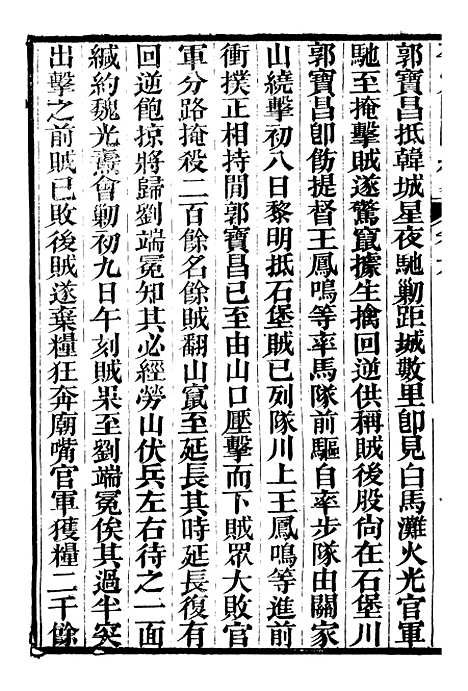 郭寶昌抵韓城星夜馳勦距城數里卽見白馬灘火光官軍
馳至掩擊賊遂驚竄據生擒回逆供稱賊後股尙在石堡川
郭寶昌卽飭提督王鳳鳴等率馬隊前驅自率步隊由關家
山繞擊初八日黎明抵石堡賊已列隊川上王鳳鳴等進前
衝撲正相持閒郭寶昌已至由山口壓擊而下賊眾大敗官
軍分路掩殺二百餘名餘賊翻山竄至延長其時延長復有
回逆飽掠將歸劉端冕知其必經勞山伏兵左右待之一面
緘約魏光燾會勦初九日午刻賊果至劉端冕俟其過半突
出擊之前賊已敗後賊遂棄糧狂奔廟嘴官軍獲糧二千餘